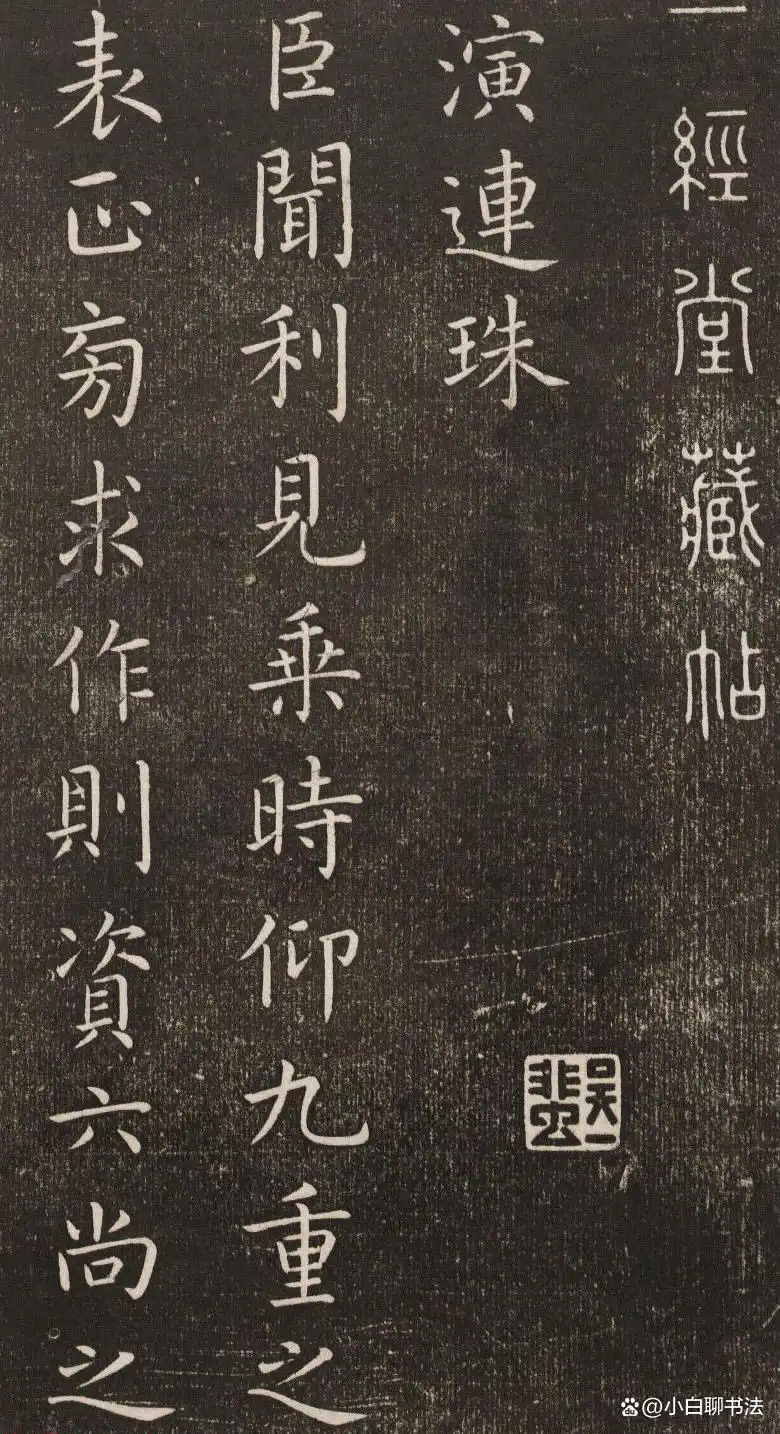 一經堂藏帖
演連珠
臣聞利見乘時仰九重之
表正旁求作則資六尚之
吳一蜚
@小白聊书法